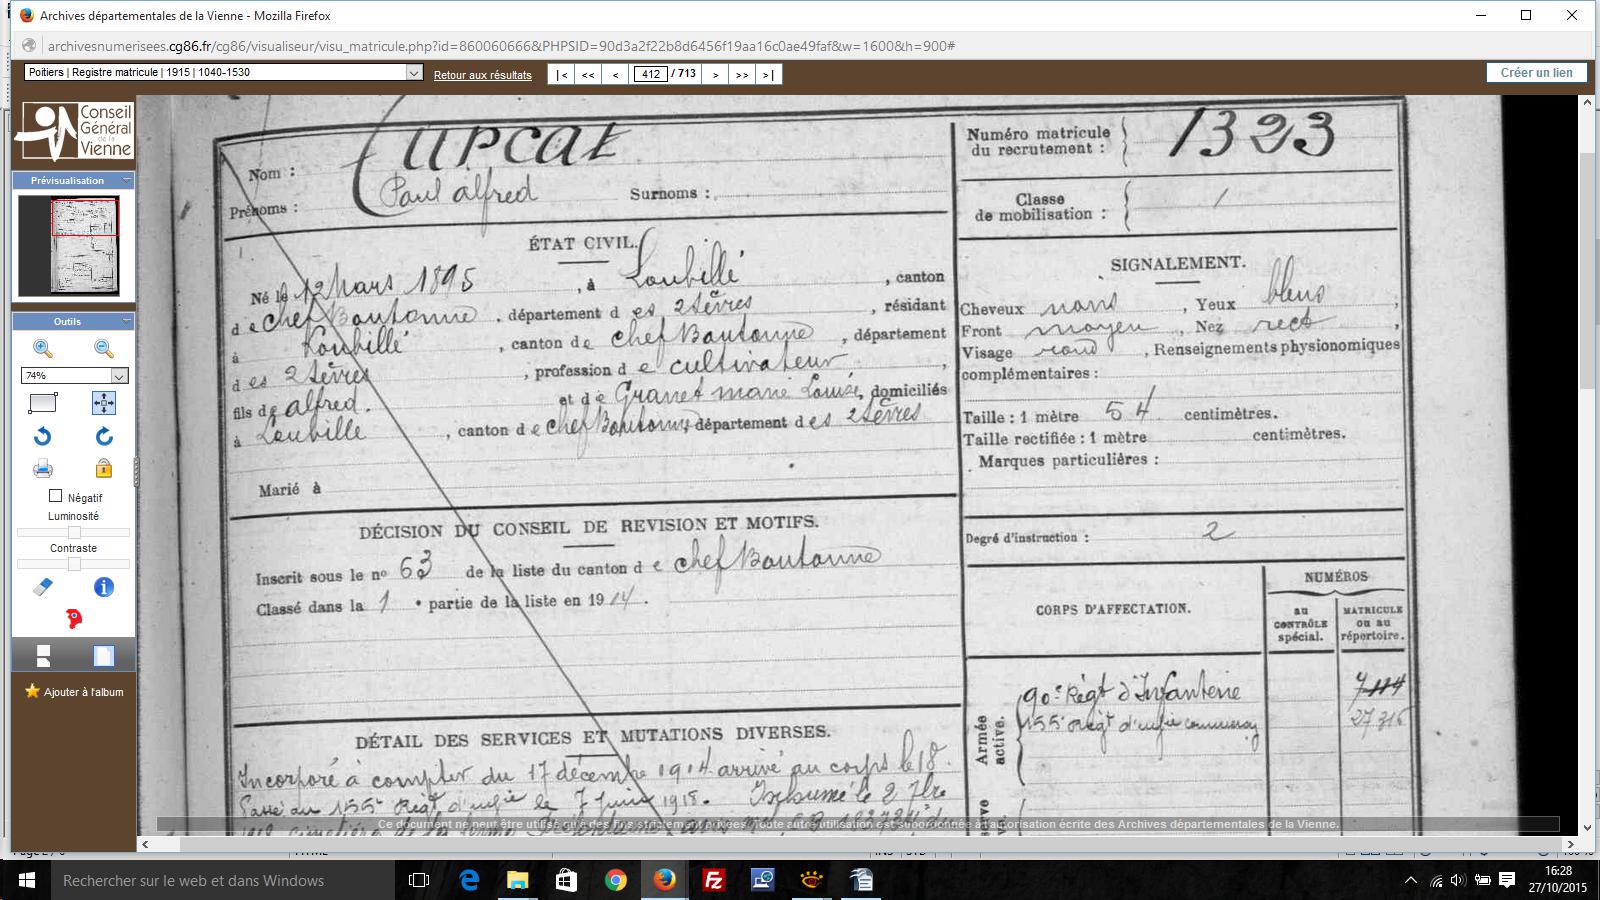 Archives départementales de la Vienne - Mozilla Firefox
archivesnumerisees.cg86.fr/cg86/visualiseur/visu_matricule.php?id=860060666&PHPSID=90d3a2f22b8d6456f19aa16c0ae49faf&w=1600&h=900#
Poitiers | Registre matricule | 1915 | 1040-1530
Retour aux résultats
|< << < 412 / 713 > >> >|
Créer un lien
Conseil
Général
de la
Vienne
Prévisualisation
Outils
74%
Négatif
Luminosité
Contraste
Ajouter à l'album
Nom :
Prénoms : Paul alfred Surnoms :
Numéro matricule
du recrutement : 1323
Classe
de mobilisation :
ÉTAT CIVIL.
Né le 12 Mars 1895, à Loubillé, canton
de chef Boutonne, département des 2 Sèvres, résidant
à Loubillé, canton de chef Boutonne, département
des 2 Sèvres, profession de cultivateur,
fils de alfred. et de Granet marie Louise, domiciliés
à Loubillé, canton de chef Boutonne, département des 2 Sèvres
Marié à
SIGNALEMENT.
Cheveux, Yeux bleus,
Front moyen, Nez rect,
Visage rond, Renseignements physionomiques
complémentaires :
Taille : 1 mètre 54 centimètres.
Taille rectifiée : 1 mètre centimètres.
Marques particulières :
Degré d'instruction : 2
DÉCISION DU CONSEIL DE REVISION ET MOTIFS.
Inscrit sous le nº 63 de la liste du canton de chef Boutonne
Classé dans la 1 e partie de la liste en 1914.
CORPS D'AFFECTATION.
NUMÉROS
au
CONTRÔLE
spécial.
MATRICULE
ou au
répertoire.
Armée
active.
90e Régt d'Infanterie
155e Régt d'infie 27316
DÉTAIL DES SERVICES ET MUTATIONS DIVERSES.
Incorporé à compter du 17 décembre 1914 arrivé au corps le 18.
Passé au 155e Régt d'infie le 7 juin 1915. Inhumé le 2 7bre
Ce document ne peut être utilisé qu'à des fins strictement privées. Toute autre utilisation est subordonnée à autorisation écrite des Archives départementales de la Vienne.
Rechercher sur le web et dans Windows
16:28
27/10/2015